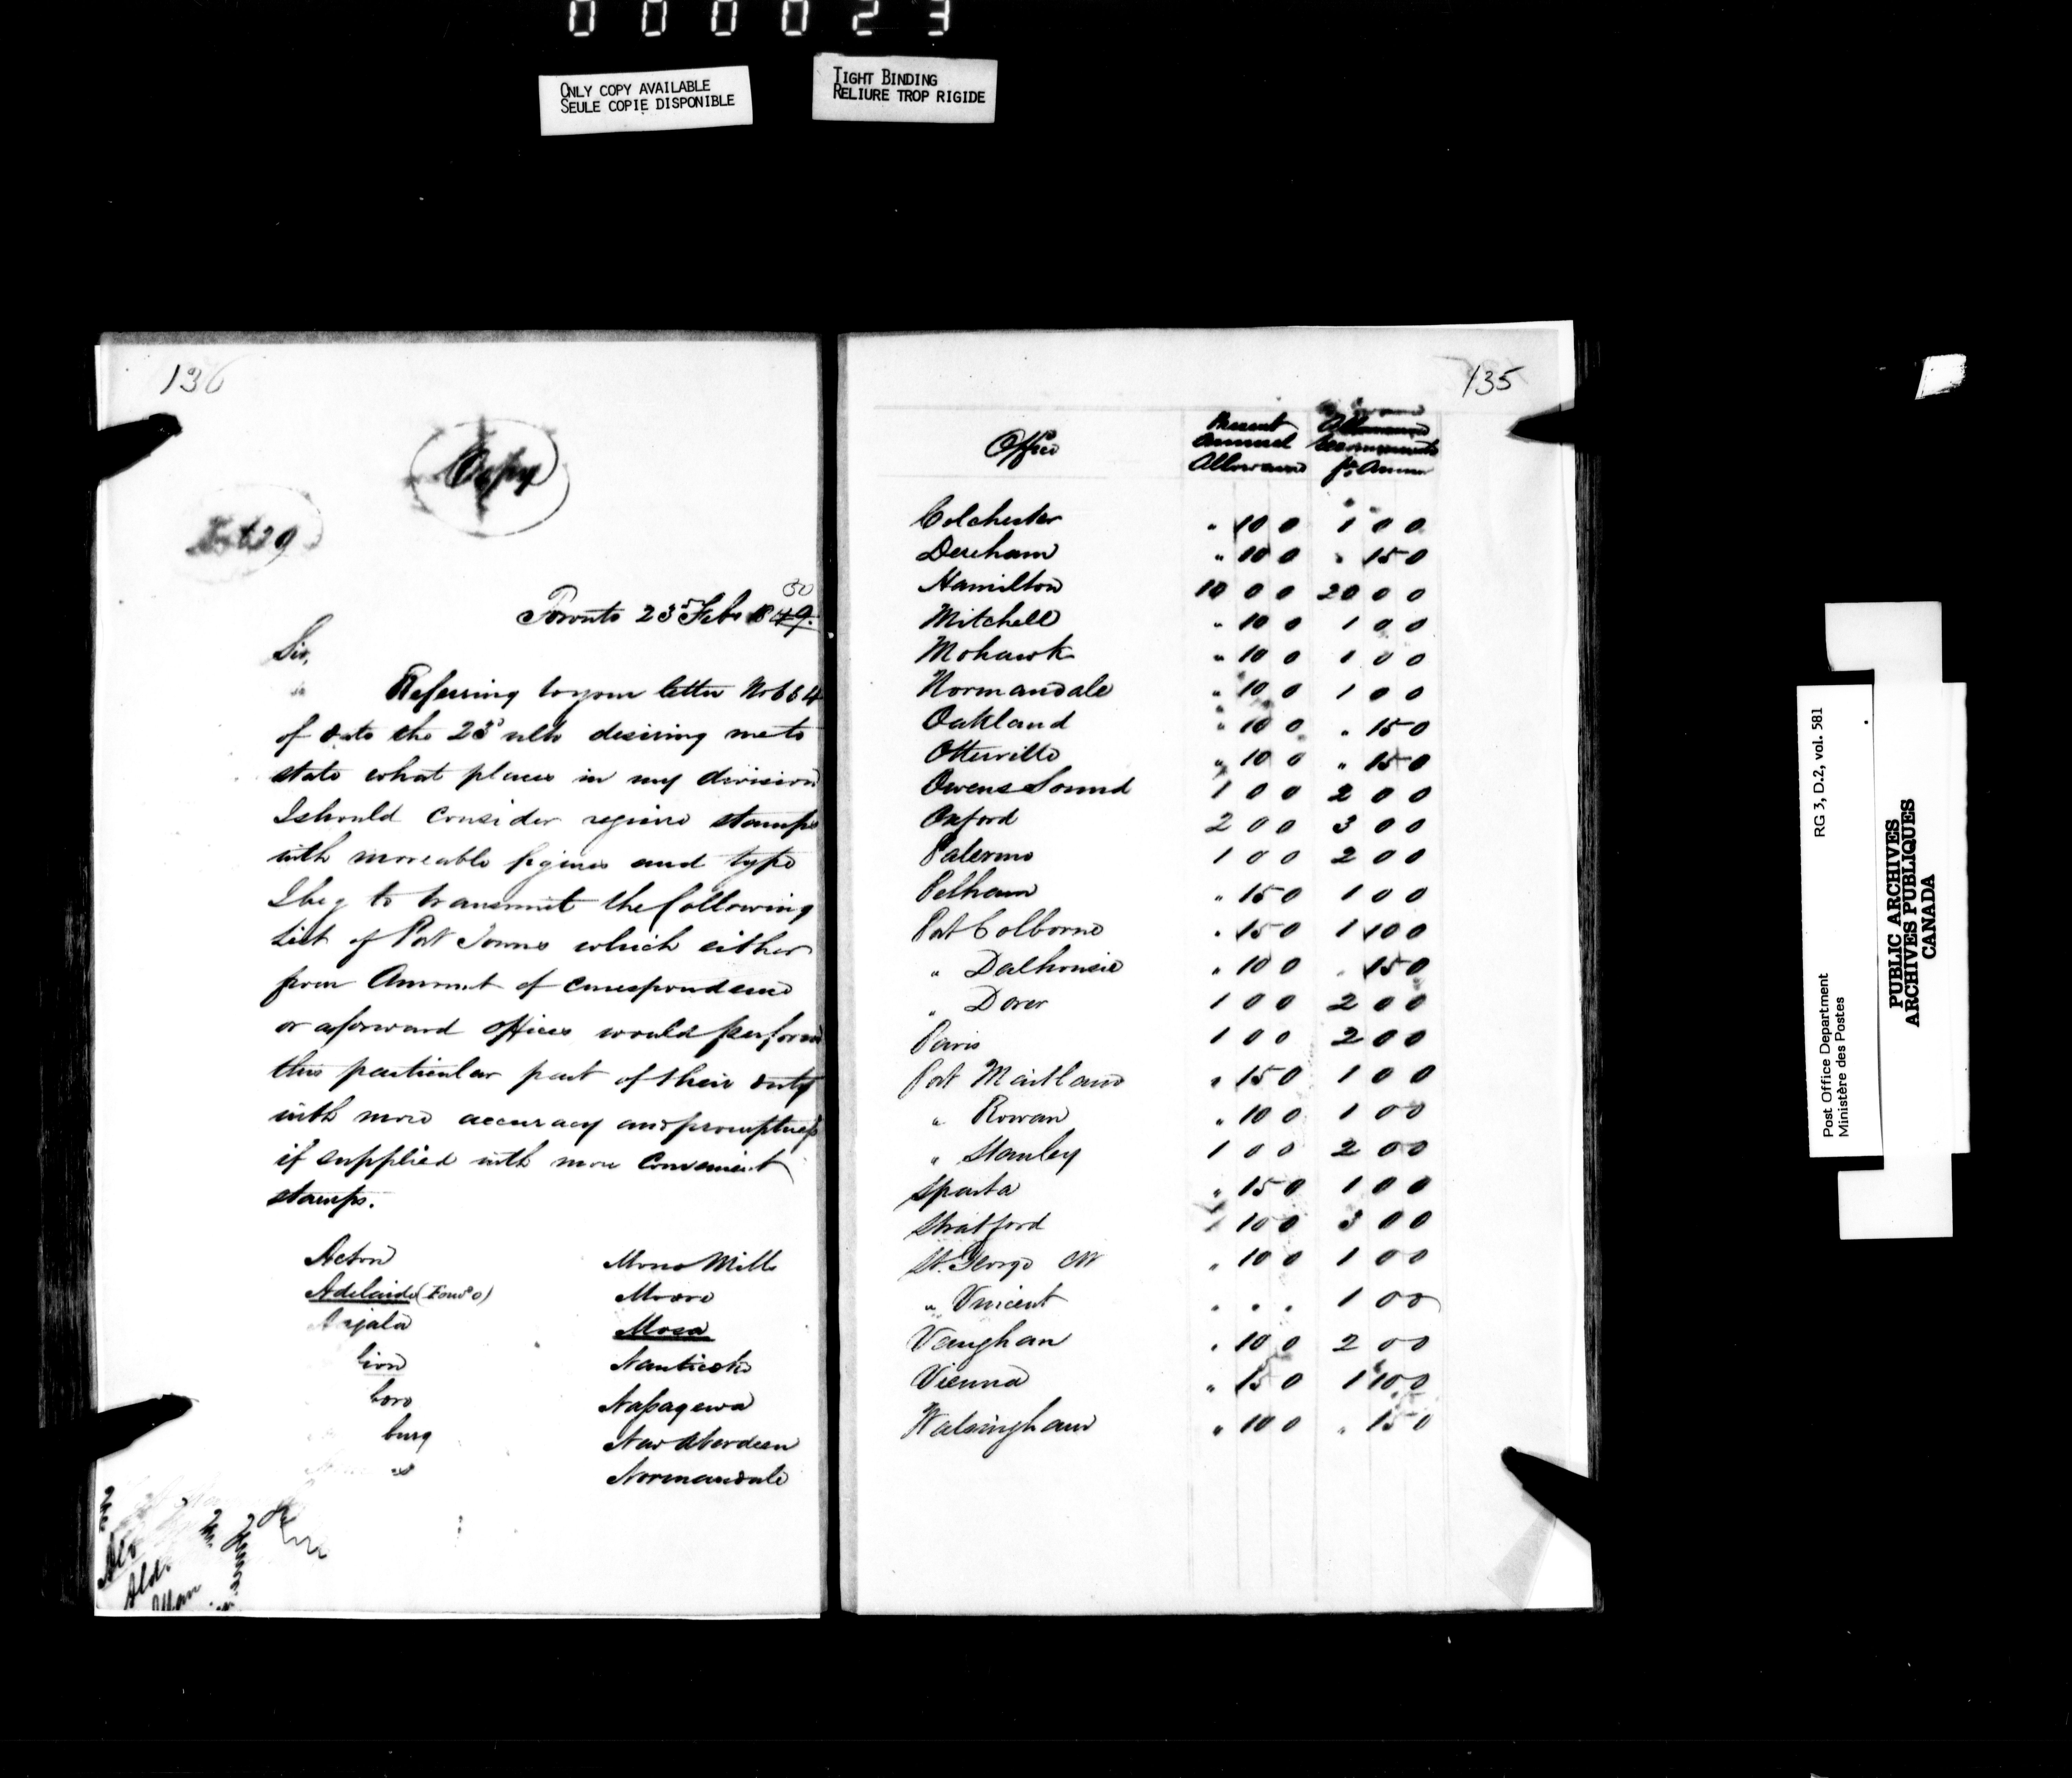 000023
ONLY COPY AVAILABLE
SEULE COPIE DISPONIBLE
TIGHT BINDING
RELIURE TROP RIGIDE
136
Copy
29
50
Toronto 23d Feby 1849.
Sir,
Referring to your letter No 684
of date the 23d ulto desiring me to
state what places in my division
I should consider require stamps
with moveable figures and type
I beg to transmit the following
List of Post Towns which either
from Amount of correspondence
or as forward offices would perform
this particular part of their duty
with more accuracy and promptness
if supplied with more Convenient
stamps.
Acton Mono Mills
Adelaide Moore
Mosa
Nanticoke
boro Napaqewa
burg New Aberdeen
Normandale
135
Office Present Annual Allowance pr Annum
Colchester " 10 0 1 0 0
Dereham " 10 0 " 15 0
Hamilton 10 0 0 20 0 0
Mitchell " 10 0 1 0 0
Mohawk " 10 0 1 0 0
Normandale " 10 0 1 0 0
Oakland " 10 0 " 15 0
Otterville " 10 0 " 15 0
Owens Sound 1 0 0 2 0 0
Oxford 2 0 0 3 0 0
Palermo 1 0 0 2 0 0
Pelham " 15 0 1 0 0
Port Colborne " 15 0 1 10 0
" Dalhousie " 10 0 " 15 0
" Dover 1 0 0 2 0 0
Paris 1 0 0 2 0 0
Port Maitland " 15 0 1 0 0
" Rowan " 10 0 1 0 0
" Stanley 1 0 0 2 0 0
Sparta " 15 0 1 0 0
Stratford 1 10 0 3 0 0
St. George CW " 10 0 1 0 0
" Vincent " " " 1 0 0
Vaughan " 10 0 2 0 0
Vienna " 15 0 1 10 0
Walsingham " 10 0 " 15 0
Post Office Department RG 3, D.2, vol. 581
Ministère des Postes
PUBLIC ARCHIVES
ARCHIVES PUBLIQUES
CANADA